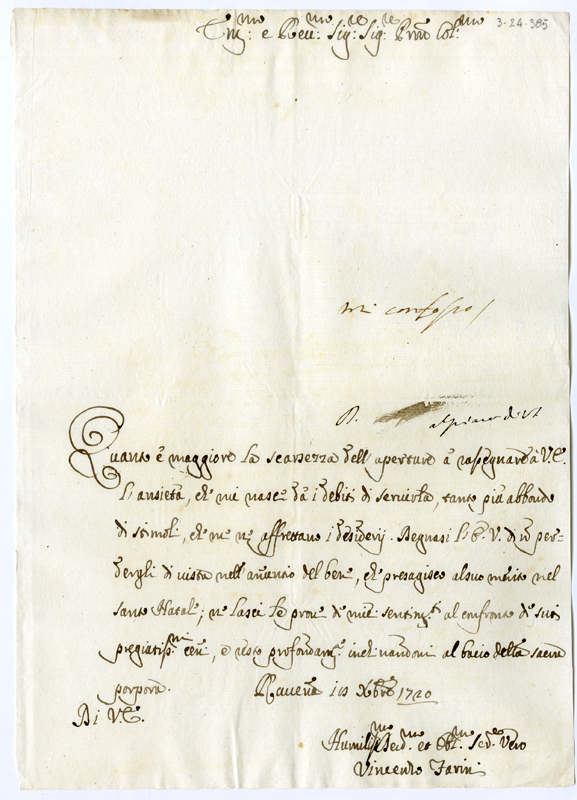 Em:mo e Reu:mo Sig:re Sig:re Prõne Col:mo
3-24-385
mi confesso
R.
Quanto è maggiore la scarsezza dell'aperture à rassegnare à V.E.
l'ansietà, che mi nasce dà i debiti di seruirla, tanto più abbonda
di stimoli, che me ne affrettano i desiderij. Degnasi l'E.V. di nõ per-
dergli di uista nell'anuncio del bene, che presagisco al suo merito nel
santo Natale; ne lasci le proue de miei sentim.ti al confronto de suoi
pregiatis.mi cenni, e resto profondam.e inclinandomi al bacio della sacra
porpora. Rauenna 10 Xbre 1720
Di V.E.
Humiliss.mo Deu.mo et Obl.mo Ser.re Vero
Vincenzo Farini